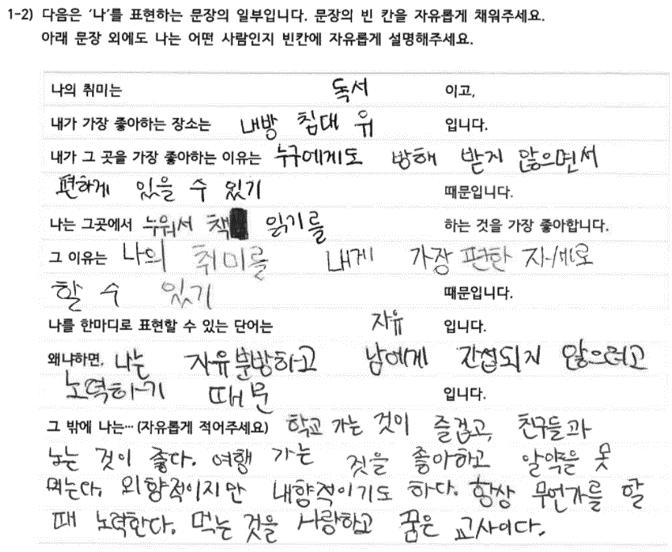 1-2) 다음은 '나'를 표현하는 문장의 일부입니다. 문장의 빈 칸을 자유롭게 채워주세요.
아래 문장 외에도 나는 어떤 사람인지 빈칸에 자유롭게 설명해주세요.
나의 취미는 독서 이고,
내가 가장 좋아하는 장소는 내방 침대 위 입니다.
내가 그 곳을 가장 좋아하는 이유는 누구에게도 방해 받지 않으면서
편하게 있을 수 있기 때문입니다.
나는 그곳에서 누워서 책 읽기를 하는 것을 가장 좋아합니다.
그 이유는 나의 취미를 내게 가장 편한 자세로
할 수 있기 때문입니다.
나를 한마디로 표현할 수 있는 단어는 자유 입니다.
왜냐하면, 나는 자유분방하고 남에게 간섭되지 않으려고
노력하기 때문 입니다.
그 밖에 나는… (자유롭게 적어주세요) 학교 가는 것이 즐겁고, 친구들과
노는 것이 좋다. 여행 가는 것을 좋아하고 알약을 못
먹는다. 외향적이지만 내향적이기도 하다. 항상 무언가를 할
때 노력한다. 먹는 것을 사랑하고 꿈은 교사이다.